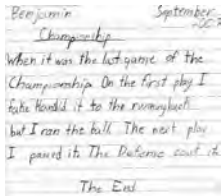 Benjamin September
Championship
When it was the last game of the
Championship. On the first play I
fake handid it to the runningback
but I ran the ball. The next play
I passed it. The Defense cout it.
The End